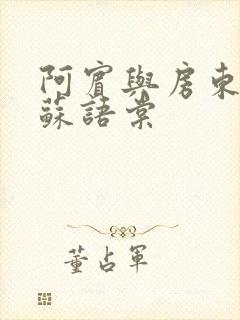 阿賓與房東
蘇語棠
董占軍